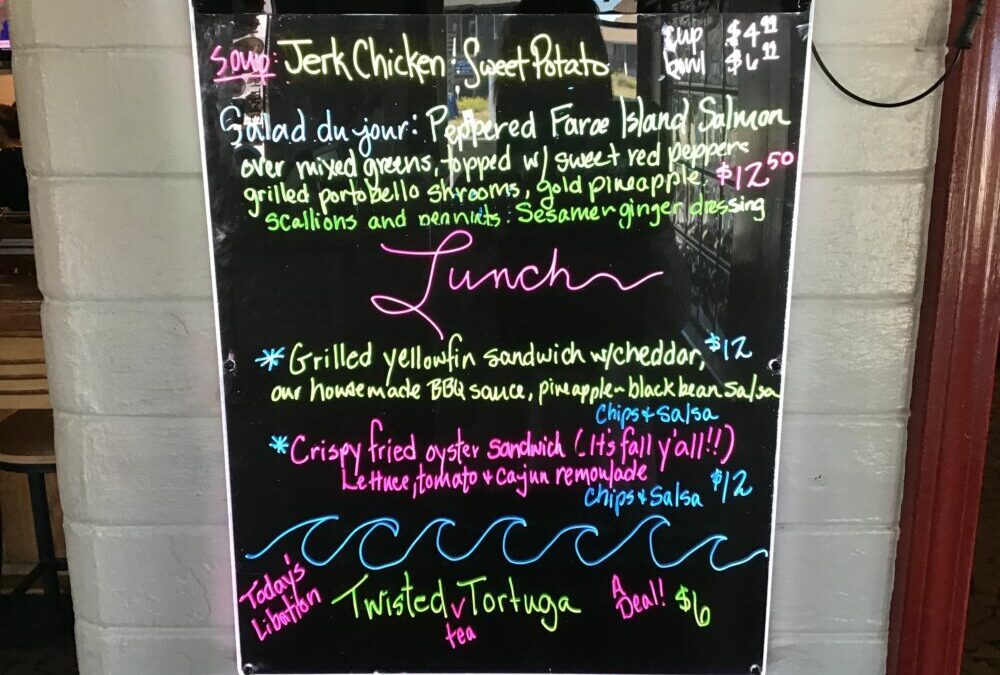 Soup: Jerk Chicken ! Sweet Potato
cup $4.99
bowl $6.99
Salad du jour: Peppered Faroe Island Salmon
over mixed greens, topped w/ sweet red peppers
grilled portobello shrooms, gold pineapple. $12.50
scallions and peanuts. Sesame ginger dressing
Lunch
* Grilled yellowfin sandwich w/cheddar, $12
our housemade BBQ sauce, pineapple-black bean Salsa
chips & Salsa
* Crispy fried oyster sandwich (It's fall y'all!!)
Lettuce, tomato & cajun remoulade
chips & Salsa $12
Today's Libation
Twisted Tortuga
tea
A Deal! $6